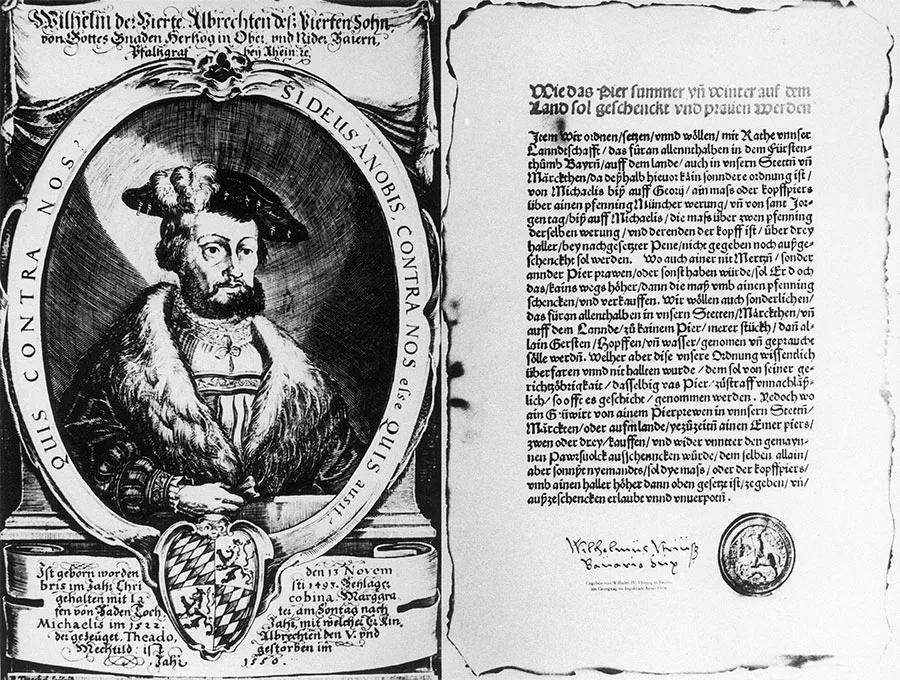 Wilhelm der Vierte Albrechten des Vierten Sohn,
von Gottes Gnaden Hertzog in Ober vnd Nider Baiern,
Pfaltzgraf bey Rhein ꝛc.
QUIS CONTRA NOS? SI DEUS A NOBIS, CONTRA NOS esse QUIS ausit?
Ist geborn worden den 13 Novem
bris im Jahr Chri sti 1493. Beylager
gehalten mit Ja cobina Marggra
fen von Baden Toch ter am Sontag nach
Michaelis im 1522. Jahr, mit welcher Er Kin.
der gezeüget. Theodo, Albrechten den V. vnd
Mechtild: ist gestorben im
Jahr 1550.
Wie das Pier summer vñ winter auf dem
Land sol geschenckt vnd prauen werden
Item Wir ordnen/setzen/vnnd wöllen/mit Rathe vnnser
Lanndtschafft/das füran allenthalben in dem Fürsten-
thumb Bayrn/auff dem lande/auch in vnsern Stettn vñ
Märckthen/da deßhalb hieuor kain sonndere ordnung ist/
von Michaelis biß auff Georij/ain mass oder kopffpiers
über ainen pfenning Müncher werung/vñ von sant Jor-
gen tag/biß auff Michaelis/die mass über zwen pfenning
derselben werung/vnd derenden der kopff ist/über drey
haller/bey nachgesetzter Pene/nicht gegeben noch außge-
schenckht sol werden. Wo auch ainer nit Mertzn/sonder
annder Pier prawen/oder sonst haben würde/sol Er doch
das/kains wegs höher/dann die maß vmb ainen pfenning
schencken/vnd verkauffen. Wir wöllen auch sonderlichen/
das füran allenthalben in vnsern Stetten/Märckthen/vñ
auff dem Lannde/zů kainem Pier/merer stückh/dañ al-
lain Gersten/Hopffen/vñ wasser/genomen vñ gepraucht
sölle werdn. Welher aber dise vnsere Ordnung wissentlich
überfaren vnnd nit hallten wurde/dem sol von seiner ge-
richtzöbrigkait/dasselbig vas Pier/zůstraff vnnachläß-
lich/so offt es geschiche/genommen werden. Jedoch wo
ain Gůwirt von ainem Pierprewen in vnnsern Stettn/
Märckten/oder aufm lande/yezůzeitn ainen Eimer piers/
zwen oder drey/kauffen/vnd wider vnnter den gemayn-
nen Pawrsuolck ausschenncken würde/dem selben allain/
aber sonnst nyemandes/sol dye mass/oder der kopffpiers/
vmb ainen haller höher dann oben gesetzt ist/zegeben/vñ/
außzeschencken erlaubt vnnd vnuerpotn.
Gegeben von Wilhelm IV. Herzog in Bayern
am Georgitag zu Ingolstadt Anno 1516